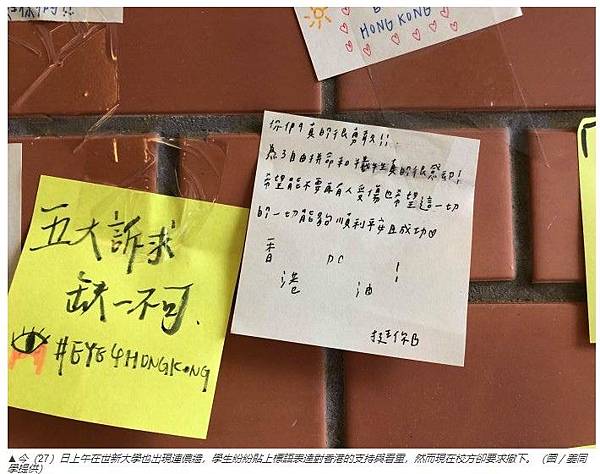 HONG KONG
你們真的很勇敢!!
為了自由拼命和犧牲真的很感動!
希望能不要再有人受傷也希望這一切
的一切能夠順利平安且成功♡
香 加 !
港 油
挺你
五大訴求
缺一不可.
#EYE4HONGKONG
▲今（27）日上午在世新大學也出現連儂牆，學生紛紛貼上標語表達對香港的支持與，然而現在校方卻要求撤下。（圖／同
學提供）